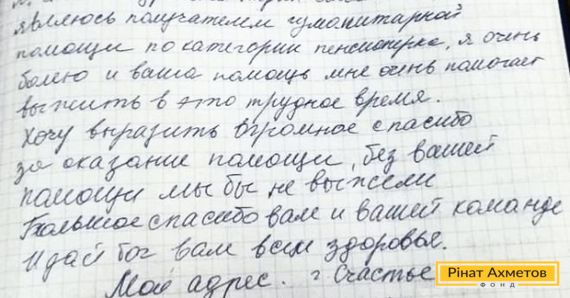 являюсь получателем гуманитарной
помощи по категории пенсионерка, я очень
болею и ваша помощь мне очень помогает
выжить в это трудное время.
Хочу выразить огромное спасибо
за оказание помощи, без вашей
помощи мы бы не выжили
Большое спасибо вам и вашей команде
И дай бог вам всем здоровье.
Мой адрес. г Счастье
Рінат Ахметов
ФОНД